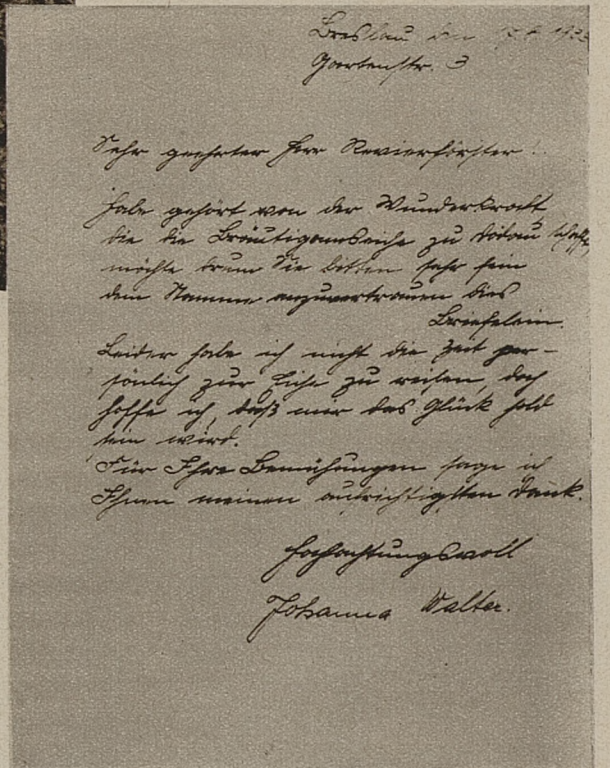 Breslau den 17.6. 193
Gartenstr. 3
Sehr geehrter Herr Revierförster!
Habe gehört von der Wunderkraft
die die Bräutigamseiche zu Dodau schafft,
möchte drum Sie bitten sehr fein
dem Stamme anzuvertrauen dies
Brieflein.
Leider habe ich nicht die Zeit per-
sönlich zur Eiche zu reisen, doch
hoffe ich, daß mir das Glück hold
sein wird.
Für Ihre Bemühungen sage ich
Ihnen meinen aufrichtigsten Dank.
Hochachtungsvoll
Johanna Walter.